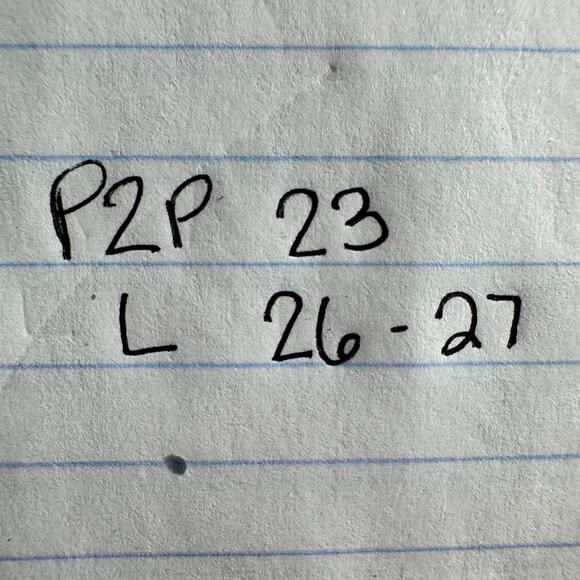 P2P 23
L 26-27